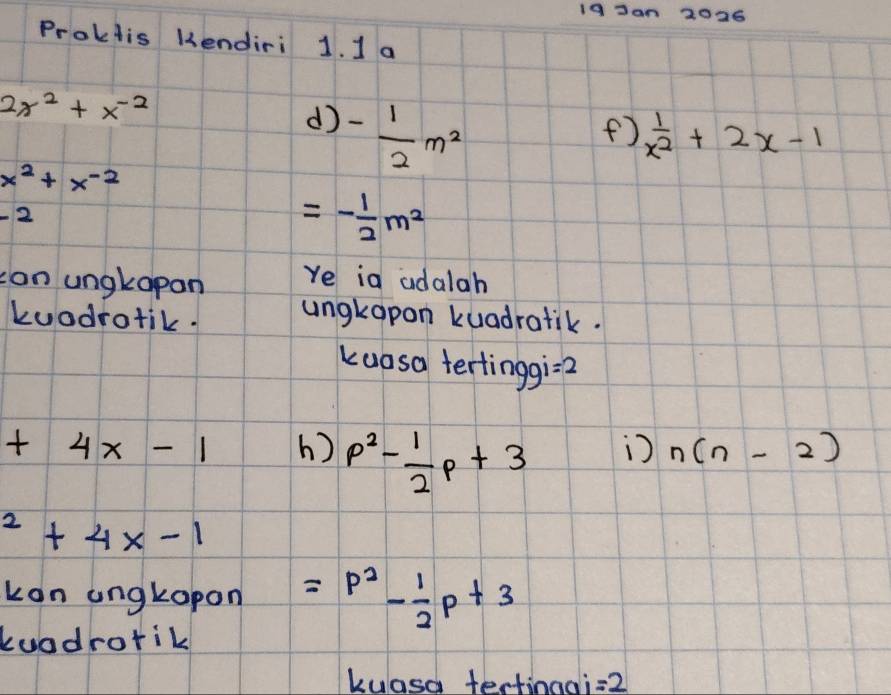 19 Jan 2026
Praktis Kendiri 1.1a
2x² + x⁻²
x² + x⁻²
-2
kan ungkapan
kuadratik.
d) - 1/2 m²
= - 1/2 m²
Ye ia adalah
ungkapan kuadratik.
kuasa tertinggi=2
f) 1/x² + 2x - 1
+ 4x - 1
² + 4x - 1
kan ungkapan
kuadratik
h) p² - 1/2 p + 3
= p² - 1/2 p + 3
kuasa tertinggi=2
i) n(n - 2)